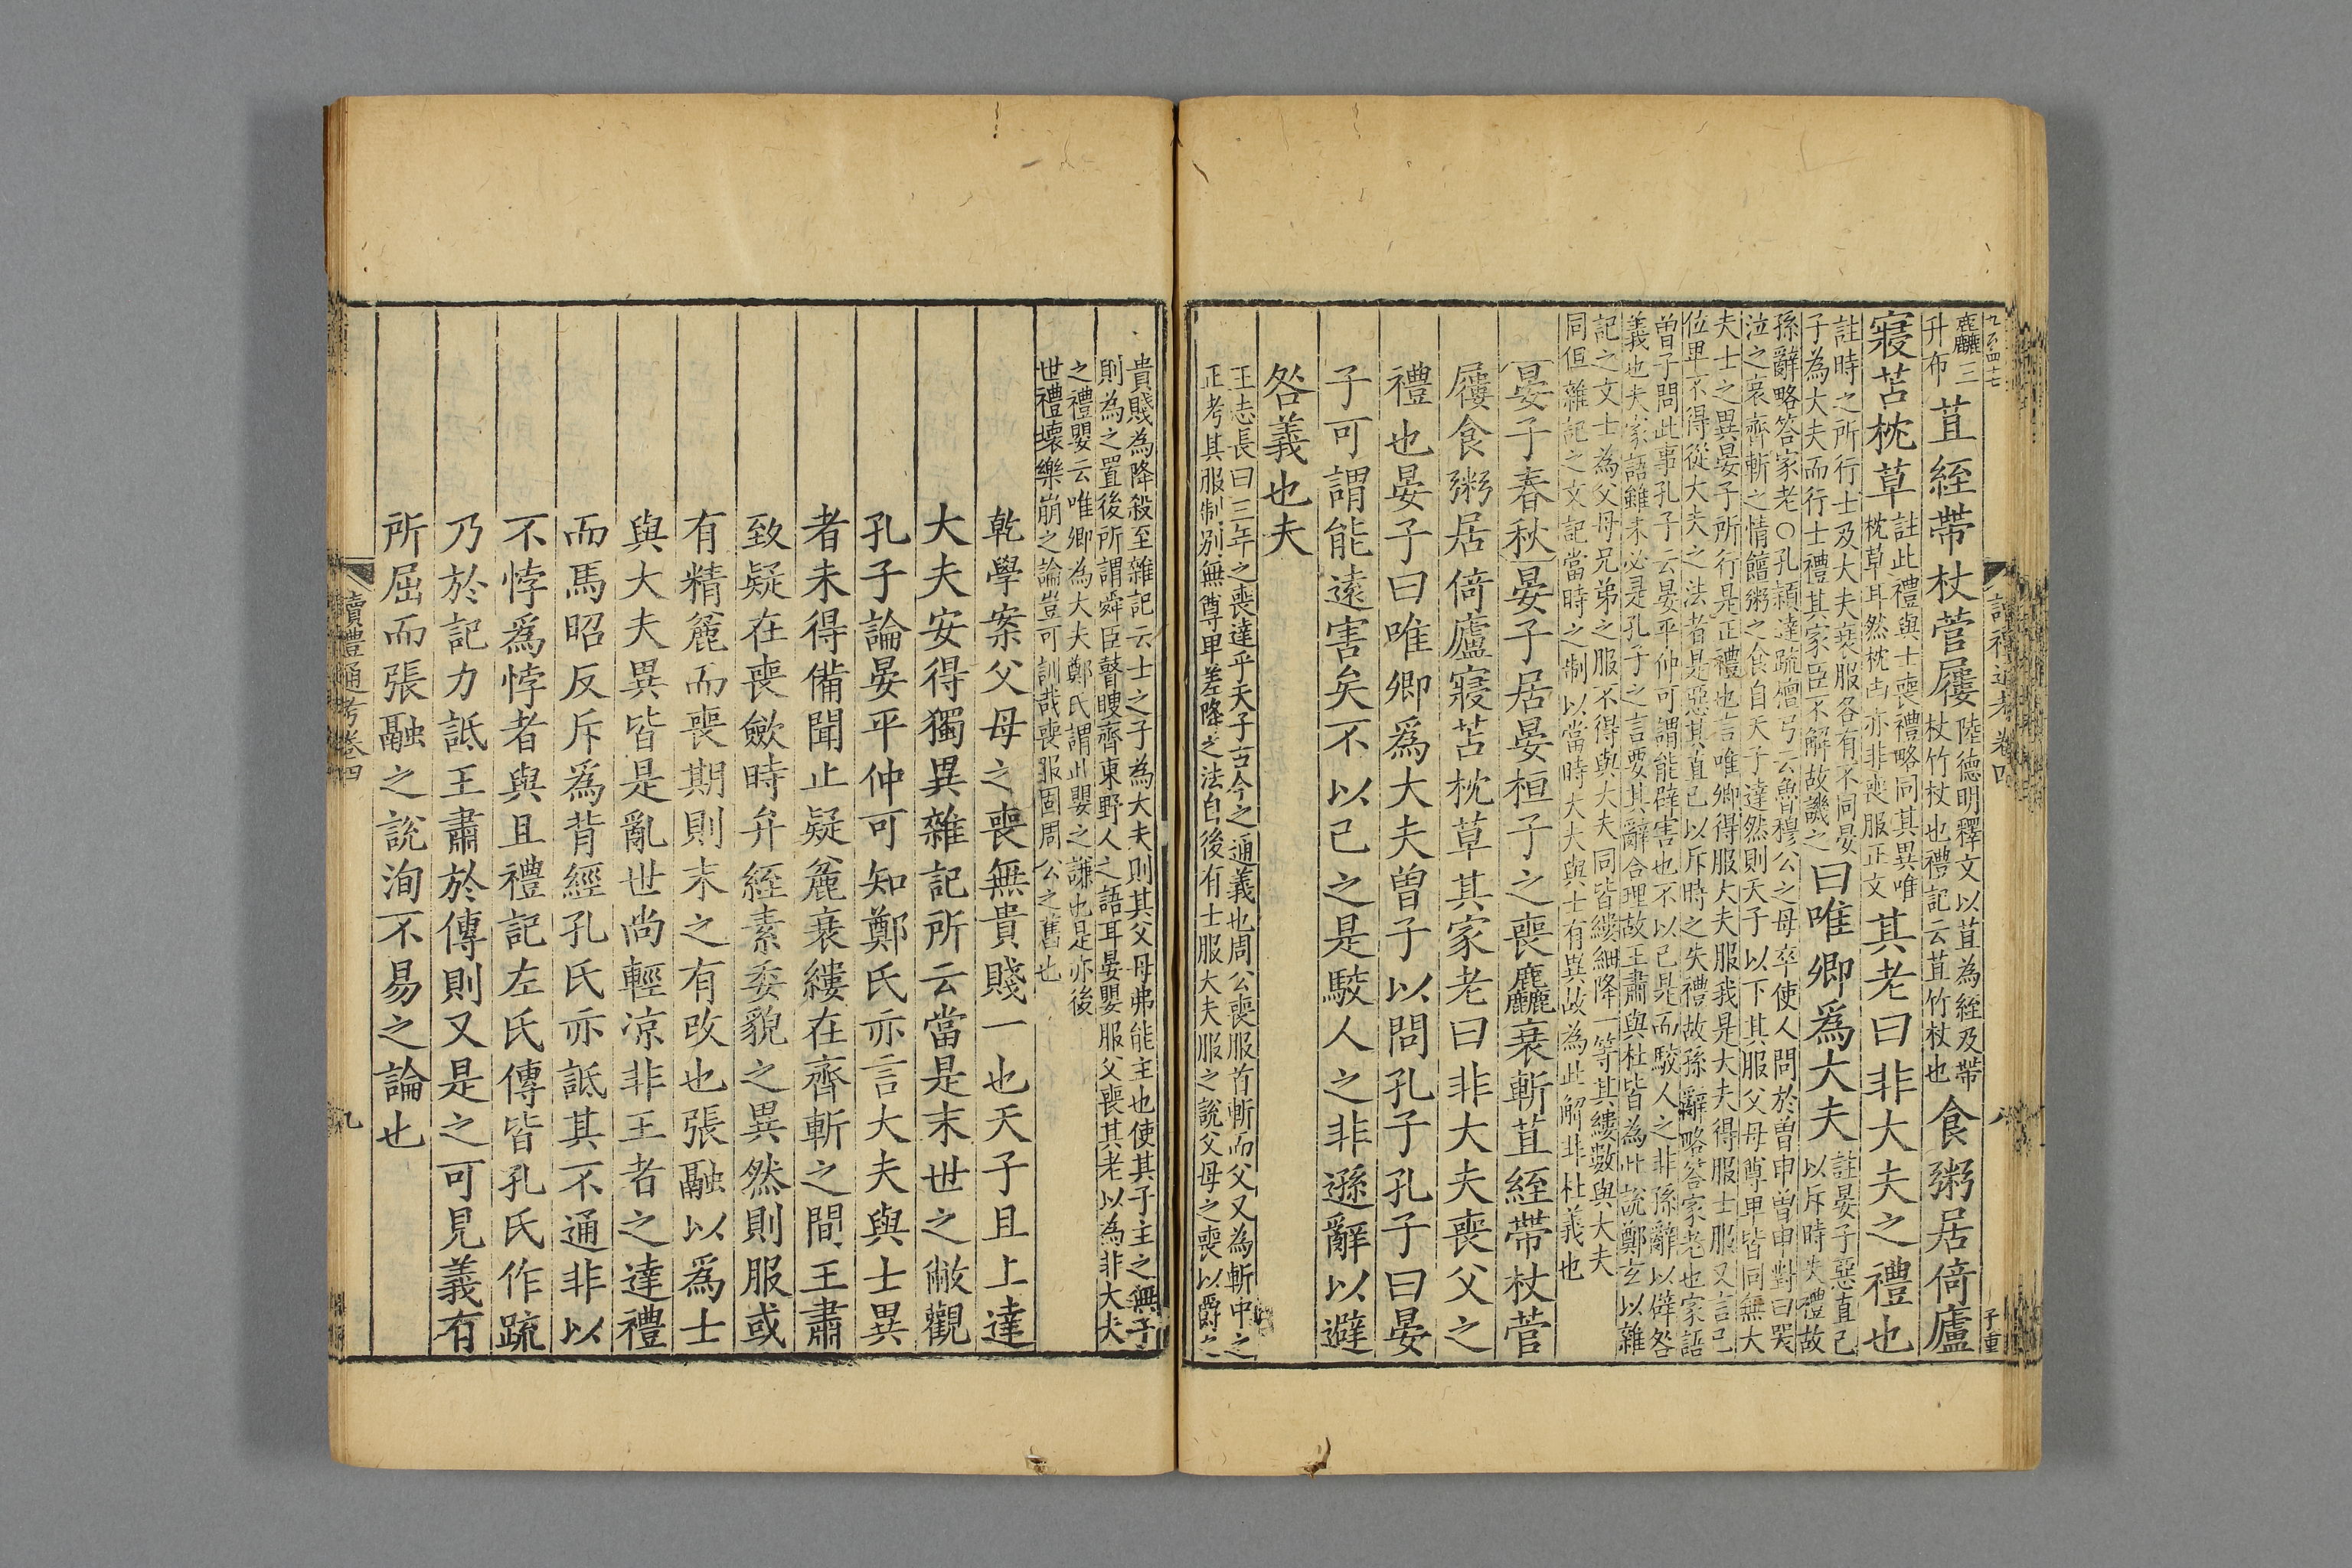 九百四十七
讀禮通考卷四
八
子重
麤三
升布
苴絰帶杖菅屨
陸德明釋文以苴為絰及帶
杖竹杖也禮記云苴竹杖也
食粥居倚廬
寢苫枕草
註此禮與士喪禮略同其異唯
枕草耳然枕凷亦非喪服正文
其老曰非大夫之禮也
註時之所行士及大夫衰服各有不同晏
子為大夫而行士禮其家臣不解故譏之
曰唯卿爲大夫
註晏子惡直己
以斥時失禮故
孫辭略答家老○孔穎達疏檀弓云魯穆公之母卒使人問於曾申曾申對曰哭
泣之哀齊斬之情饘粥之食自天子達然則天子以下其服父母尊卑皆同無大
夫士之異晏子所行是正禮也言唯卿得服大夫服我是大夫得服士服又言己
位卑不得從大夫之法者是惡其直己以斥時之失禮故孫辭略答家老也家語
曾子問此事孔子云晏平仲可謂能辟害也不以己是而駮人之非孫辭以辟咎
義也夫家語雖未必是孔子之言要其辭合理故王肅與杜皆為此說鄭玄以雜
記之文士為父母兄弟之服不得與大夫同皆縷細降一等其縷數與大夫
同但雜記之文記當時之制以當時大夫與士有異故為此解非杜義也
晏子春秋晏子居晏桓子之喪麤衰斬苴絰帶杖菅
屨食粥居倚廬寢苫枕草其家老曰非大夫喪父之
禮也晏子曰唯卿爲大夫曾子以問孔子孔子曰晏
子可謂能遠害矣不以己之是駮人之非遜辭以避
咎義也夫
王志長曰三年之喪達乎天子古今之通義也周公喪服首斬而父又為斬中之
正考其服制別無尊卑差降之法自後有士服大夫服之說父母之喪以爵之
貴賤為降殺至雜記云士之子為大夫則其父母弗能主也使其子主之無子
則為之置後所謂舜臣瞽瞍齊東野人之語耳晏嬰服父喪其老以為非大夫
之禮嬰云唯卿為大夫鄭氏謂此嬰之謙也是亦後
世禮壞樂崩之論豈可訓哉喪服固周公之舊也
乾學案父母之喪無貴賤一也天子且上達
大夫安得獨異雜記所云當是末世之敝觀
孔子論晏平仲可知鄭氏亦言大夫與士異
者未得備聞止疑麄衰縷在齊斬之間王肅
致疑在喪歛時弁絰素委貌之異然則服或
有精麄而喪期則未之有改也張融以爲士
與大夫異皆是亂世尚輕涼非王者之達禮
而馬昭反斥爲背經孔氏亦詆其不通非以
不悖爲悖者與且禮記左氏傳皆孔氏作疏
乃於記力詆王肅於傳則又是之可見義有
所屈而張融之說洵不易之論也
讀禮通考卷四
九